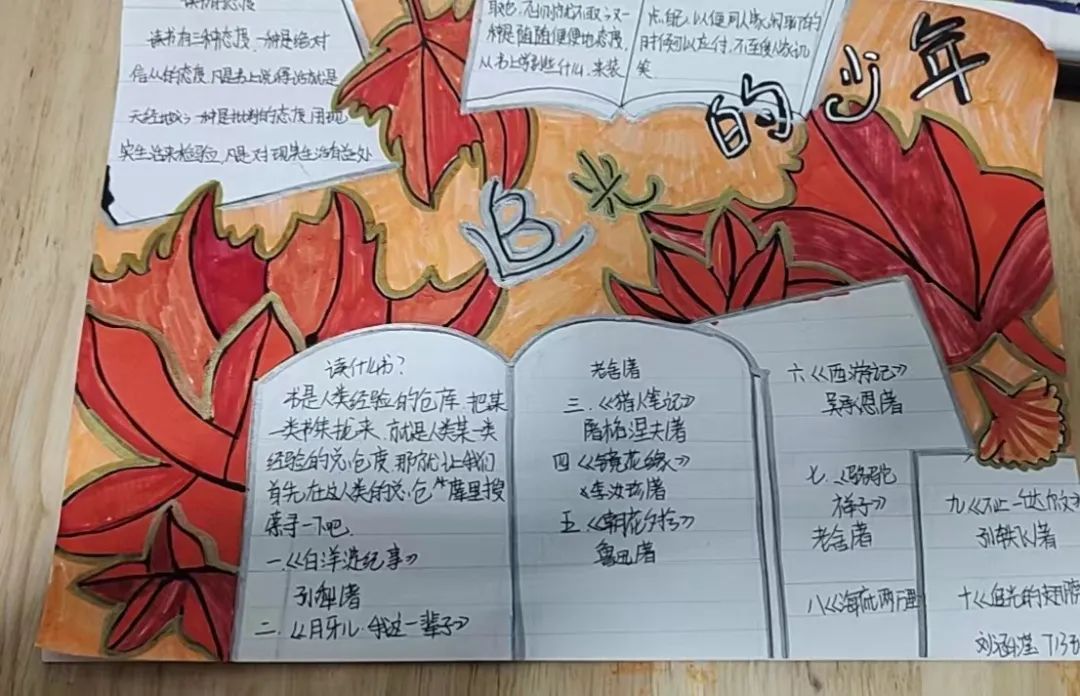 读书的态度
读书有三种态度，一种是绝对
信从的态度，凡是书上说得话就是
天经地义，一种是批判的态度，用现
实生活来检验，凡是对现实生活有益处
取它，否则就不取，又一
种是随随便便地态度，
从书上学到些什么，来装
点自己，以便同人家闲聊的
时候可以应付，不至使人家讥
笑
追光的少年
读什么书？
书是人类经验的仓库，把某
一类书集拢来，就是人类某一类
经验的总仓库，那就让我们
首先在这人类的总仓库里搜
寻一下吧
一.《白洋淀纪事》
孙犁著
二.《月牙儿·我这一辈子》
老舍著
三.《猎人笔记》
屠格涅夫著
四《镜花缘》
李汝珍著
五《朝花夕拾》
鲁迅著
六《西游记》
吴承恩著
七.《骆驼
祥子》
老舍著
八《海底两万里
九《不止一次
孙轶飞著
十《追光的翅膀